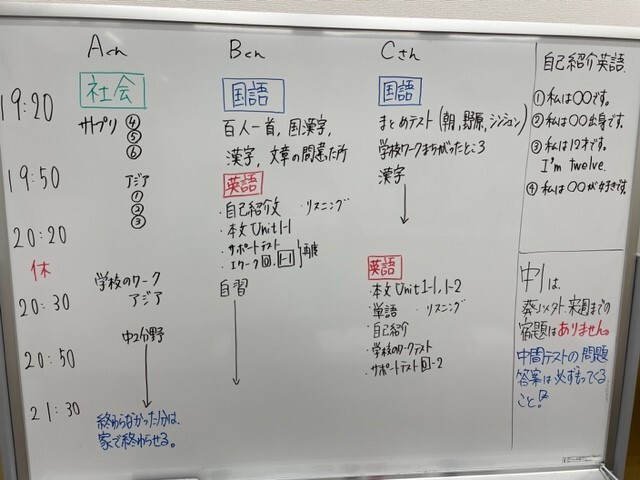 Aくん
Bくん
Cさん
19:20
19:50
20:20
休
20:30
20:50
21:30
社会
サプリ ④
⑤
⑥
アジア
①
②
③
学校のワーク
アジア
中2分野
終わらなかった分は、
家で終わらせる。
国語
百人一首, 国漢字,
漢字, 文章の間違った所
英語
・自己紹介文 ・リスニング
・本文Unit1-1
・サポートテスト
・エワーク 回, 1-1 再度
自習
国語
まとめテスト (朝, 野原, シンシュン)
学校ワークまちがったところ
漢字
英語
・本文Unit1-1, 1-2
・単語 ・リスニング
・自己紹介
・学校のワークテスト
・サポートテスト 回-2
自己紹介英語.
① 私は○○です。
② 私は○○出身です.
③ 私は12才です。
I'm twelve.
④ 私は○○が好きです。
中1は、
来週までの
宿題はありません。
中間テストの問題
答案は必ずもってくる
こと!